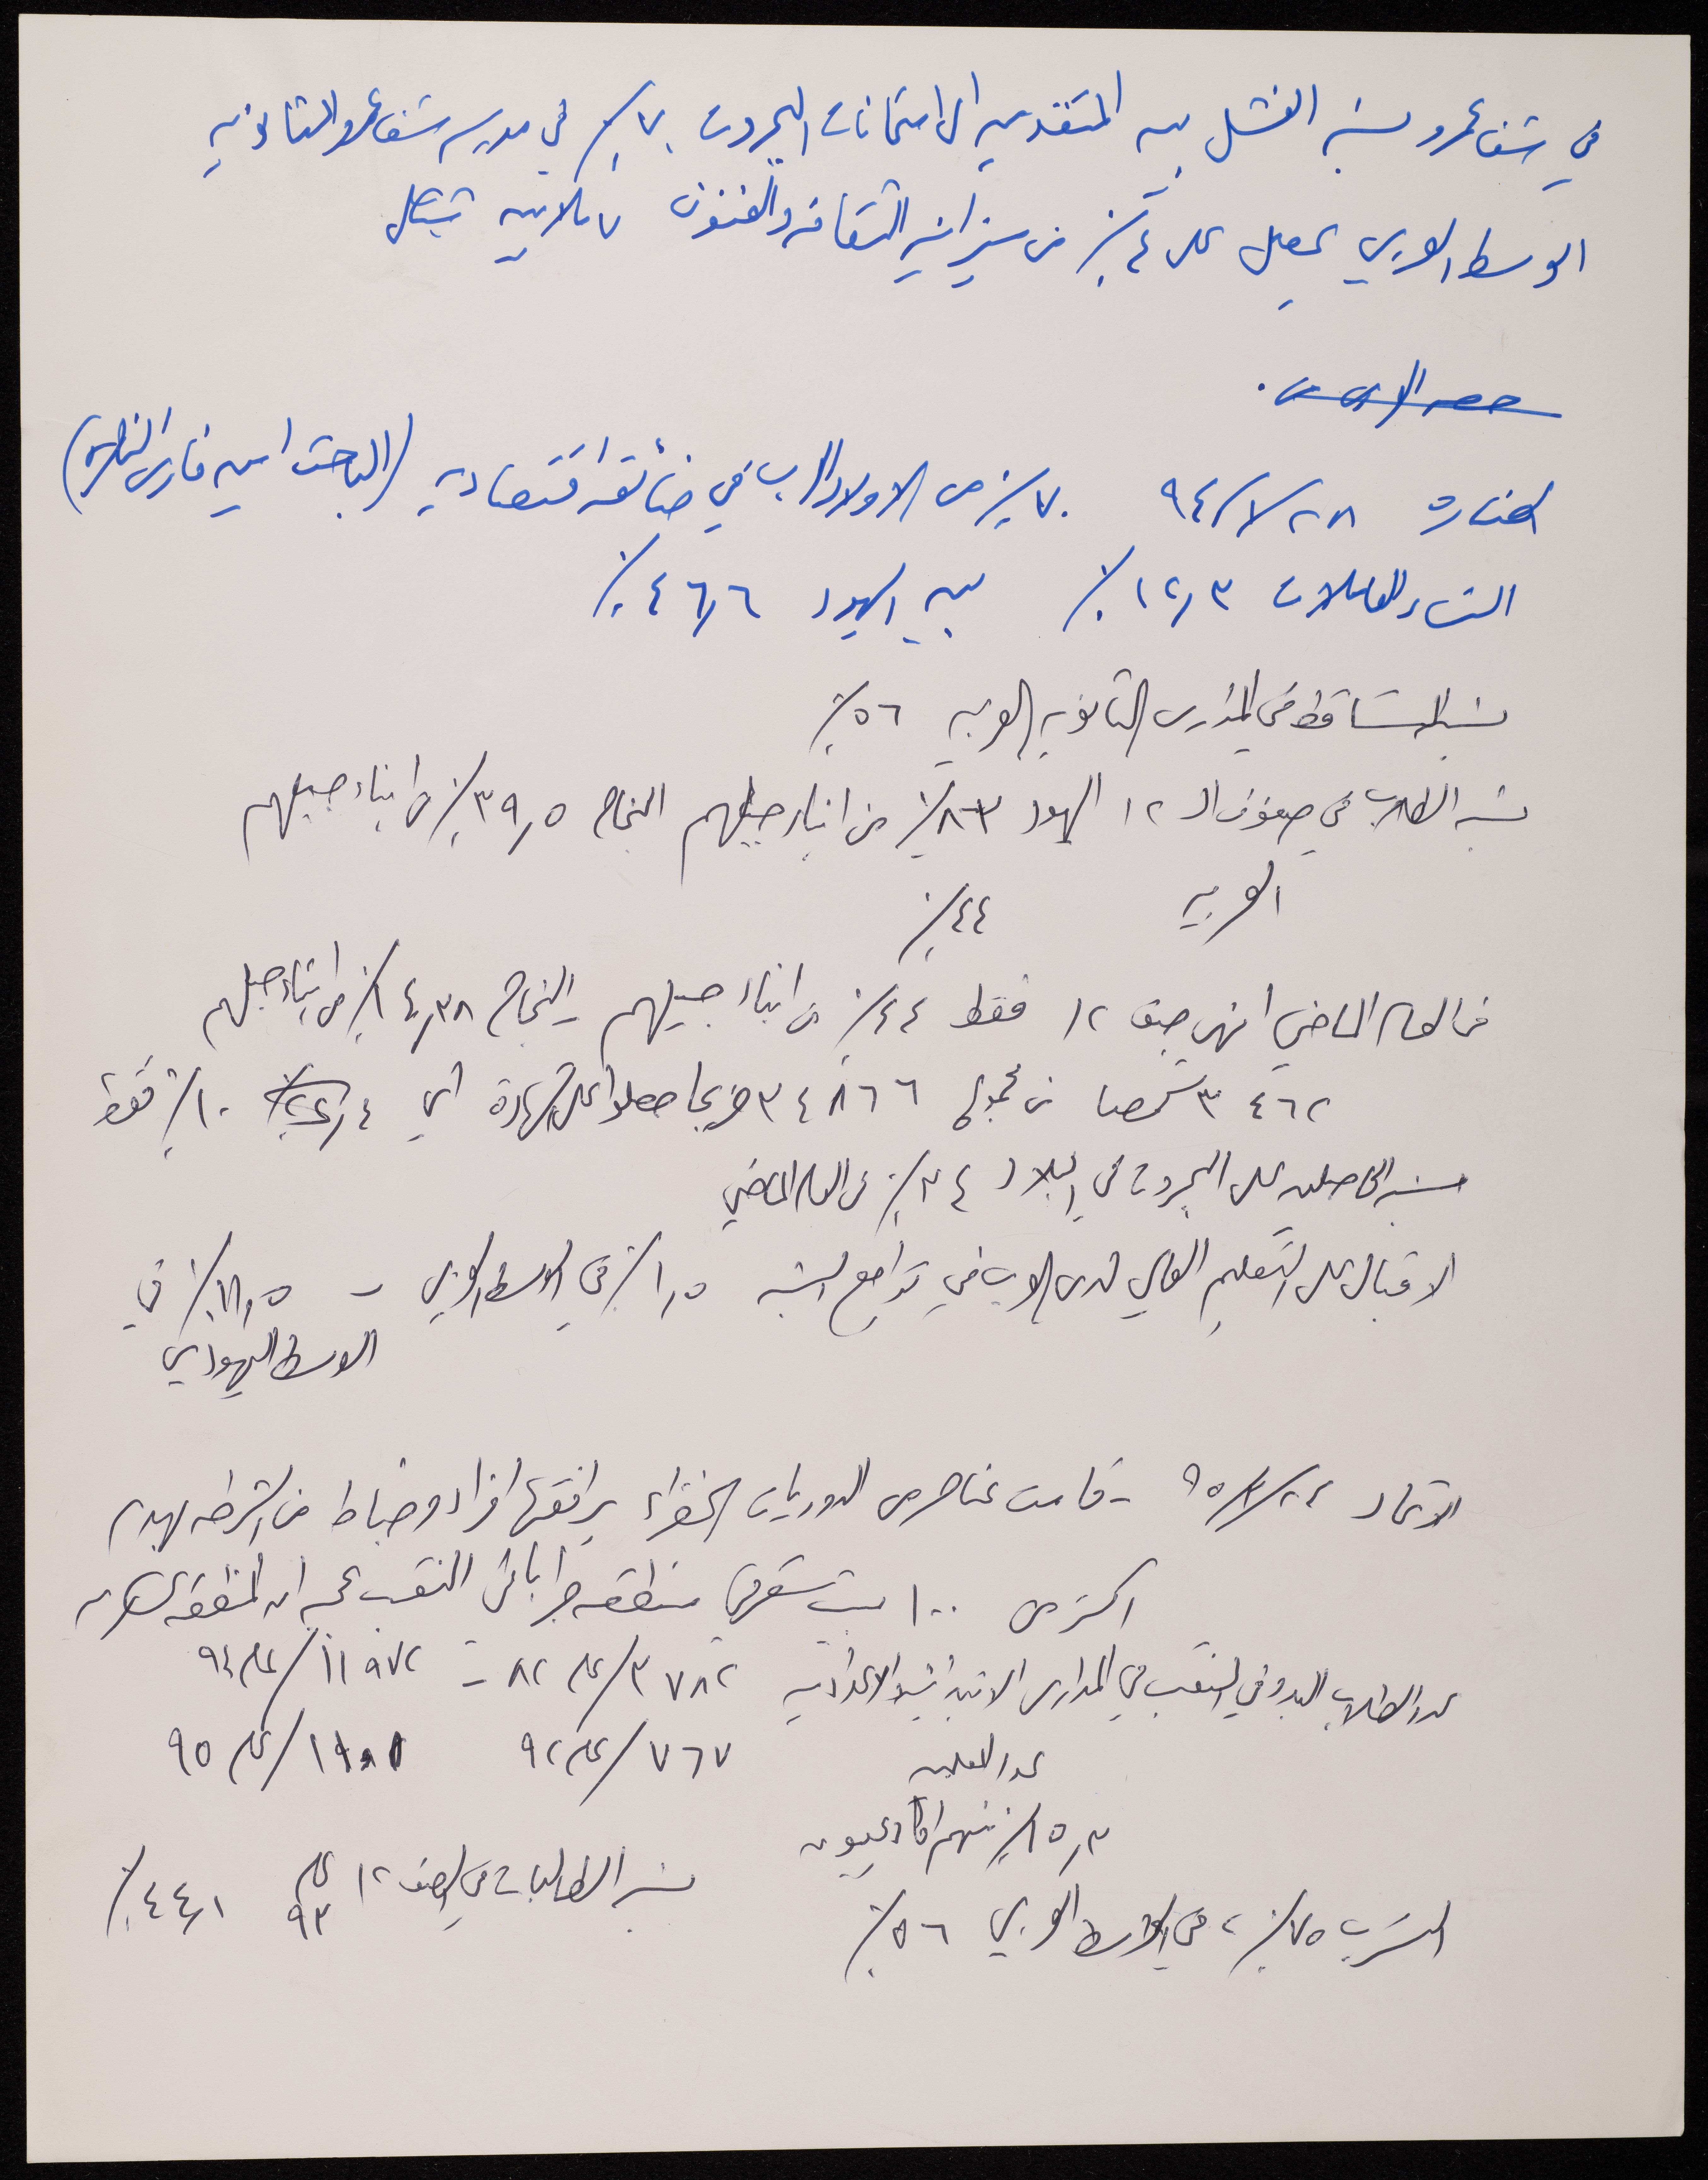 في شفاعمرو نسبة الفشل بين المتقدمين الى امتحانات البجروت ٧٠٪ في مدرسة شفاعمرو الثانوية
الوسط العربي يحصل على ٤٪ من ميزانية الثقافة والفنون ٧ ملايين شيكل
الصنارة ٢٨/٧/٩٤ ٧٠٪ من الاولاد العرب في ضائقة اقتصادية (الباحث امين فارس الناصرة)
النساء العاملات ١٢,٣٪ بين اليهود ٤٦,٦٪
نسبة التساقط في المدارس الثانوية العربية ٥٦٪
نسبة الطلاب في صفوف الـ ١٢ اليهود ٨٣٪ من ابناء جيلهم النجاح ٣٩,٥٪ من ابناء جيلهم
العربية ٤٤٪
في العام الماضي انهى صف ١٢ فقط ٤٤٪ من ابناء جيلهم - النجاح ١٤,٣٨٪ من ابناء جيلهم
٣٤٦٢ شخصا من مجموع ٣٤٨٦٦ خريجا حصلوا على الشهادة اي ١٠٪ فقط
نسبة الحاصلين على البجروت في البلاد ٣٤٪ في العام الماضي
الاقبال على التعليم العالي لدى العرب في تراجع النسبة ١,٥٪ في الوسط العربي - ٧١,٥٪ في
الوسط اليهودي
الاتحاد - قامت عناصر من الدوريات الخضراء يرافقها افراد وضباط من الشرطة بهدم
اكثر من ١٠٠ بيت شعر في منطقة في النقب بحجة ان المنطقة عسكرية
عدد الطلاب البدو في النقب في المدارس الابتدائية والاعدادية ٣٧٨٢/عام ٨٢ - ١١٩٧٢/عام ٩٤
عدد المعلمين ٧٦٧/عام ٩٢ عام ٩٥
١٥,٣٪ منهم اكاديميون
التسرب ٧٥٪، في الوسط العربي ٥٦٪ نسبة الطالبات في الصف ١٢ عام ٩٣ ٤٤,١٪